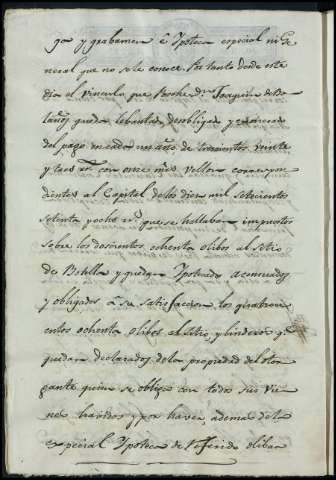 gor y grabamen é Ypoteca especial ni Ge
neral que no se le conoce. Por tanto desde este
dia el Vinculo que Posehe Dn. Joaquin de Bo
laños queda lebertado, desobligado y exonerado
del pago en cada un año de trescientos veinte
y tres rs. con once mrs. vellon correspon
dientes al Capital de los diez mil setecientos
setenta y ocho rs. que se hallaban impuestos
sobre los doscientos ochenta olibos al sitio
de Botilla y quedan Ypotecados aconsuados
y obligados á su satisfaccion los
entos ochenta olibos al sitio, y linderos qe.
quedan declarados de la propiedad del otor
gante quien se obliga con todos sus Vie
nes havidos y por haver, ademas de la
especial Ypoteca de referido olibar